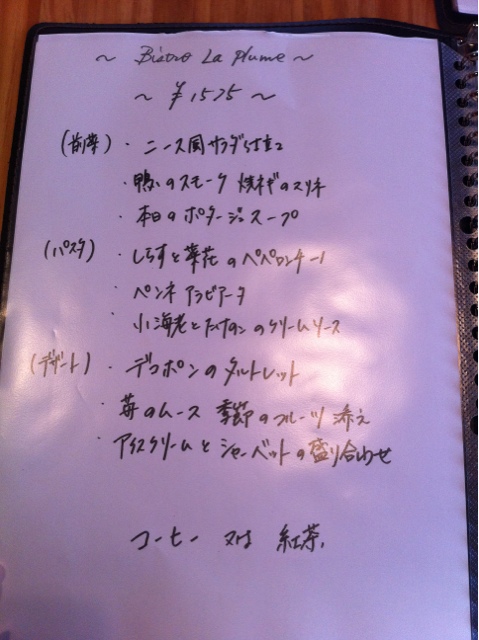 ~ Bistro La Plume ~
~ ¥1575 ~
(前菜)・ニース風サラダ仕立て
・鴨のスモーク 焼ネギのマリネ
・本日のポタージュスープ
(パスタ)・しらすと菜花のペペロンチーノ
・ペンネ アラビアータ
・小海老とたけのこのクリームソース
(デザート)・デコポンのタルトレット
・苺のムース 季節のフルーツ添え
・アイスクリームとシャーベットの盛り合わせ
コーヒー 又は 紅茶